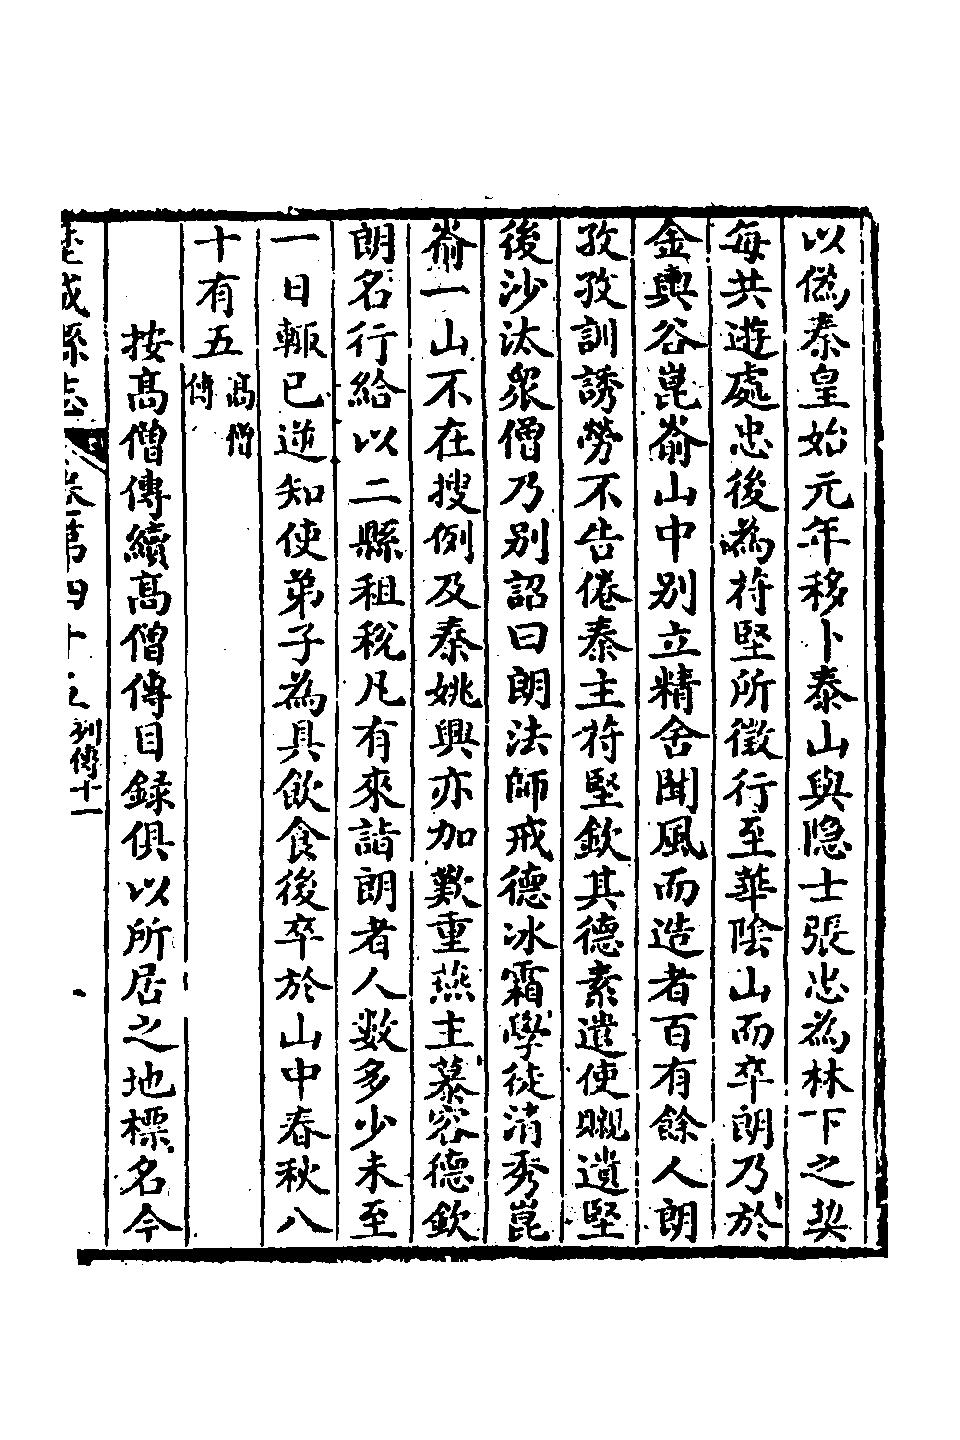 以偽秦皇始元年移卜泰山與隱士張忠為林下之契
每共遊處忠後為苻堅所徵行至華陰山而卒朗乃於
金輿谷崑崙山中别立精舍聞風而造者百有餘人朗
孜孜訓誘勞不告倦秦主苻堅欽其德素遣使贈遺堅
後沙汰衆僧乃别詔曰朗法師戒德冰霜學徒清秀崑
崙一山不在搜例及秦姚興亦加歎重燕主慕容德欽
朗名行給以二縣租稅凡有來詣朗者人數多少未至
一日輒已逆知使弟子為具飲食後卒於山中春秋八
十有五高僧傳
按高僧傳續高僧傳目録俱以所居之地標名今
歷城縣志 卷第四十 列傳十一